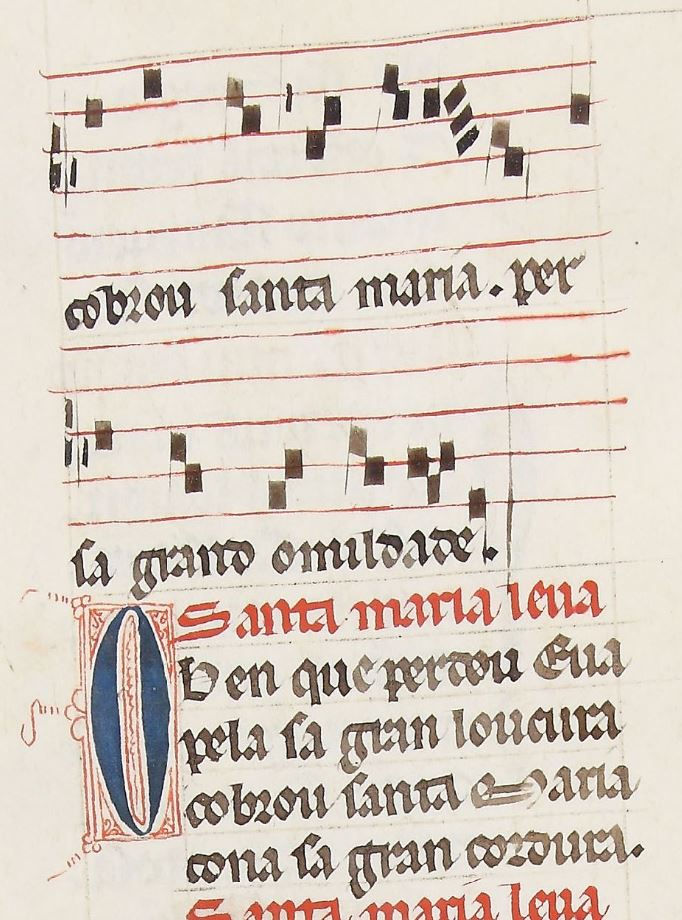 cobrou santa maria. per
sa grand omildade.
Santa maria leua
O ben que perdou Eua
pela sa gran loucura
cobrou santa Maria
cona sa gran cordura.
Santa maria leua